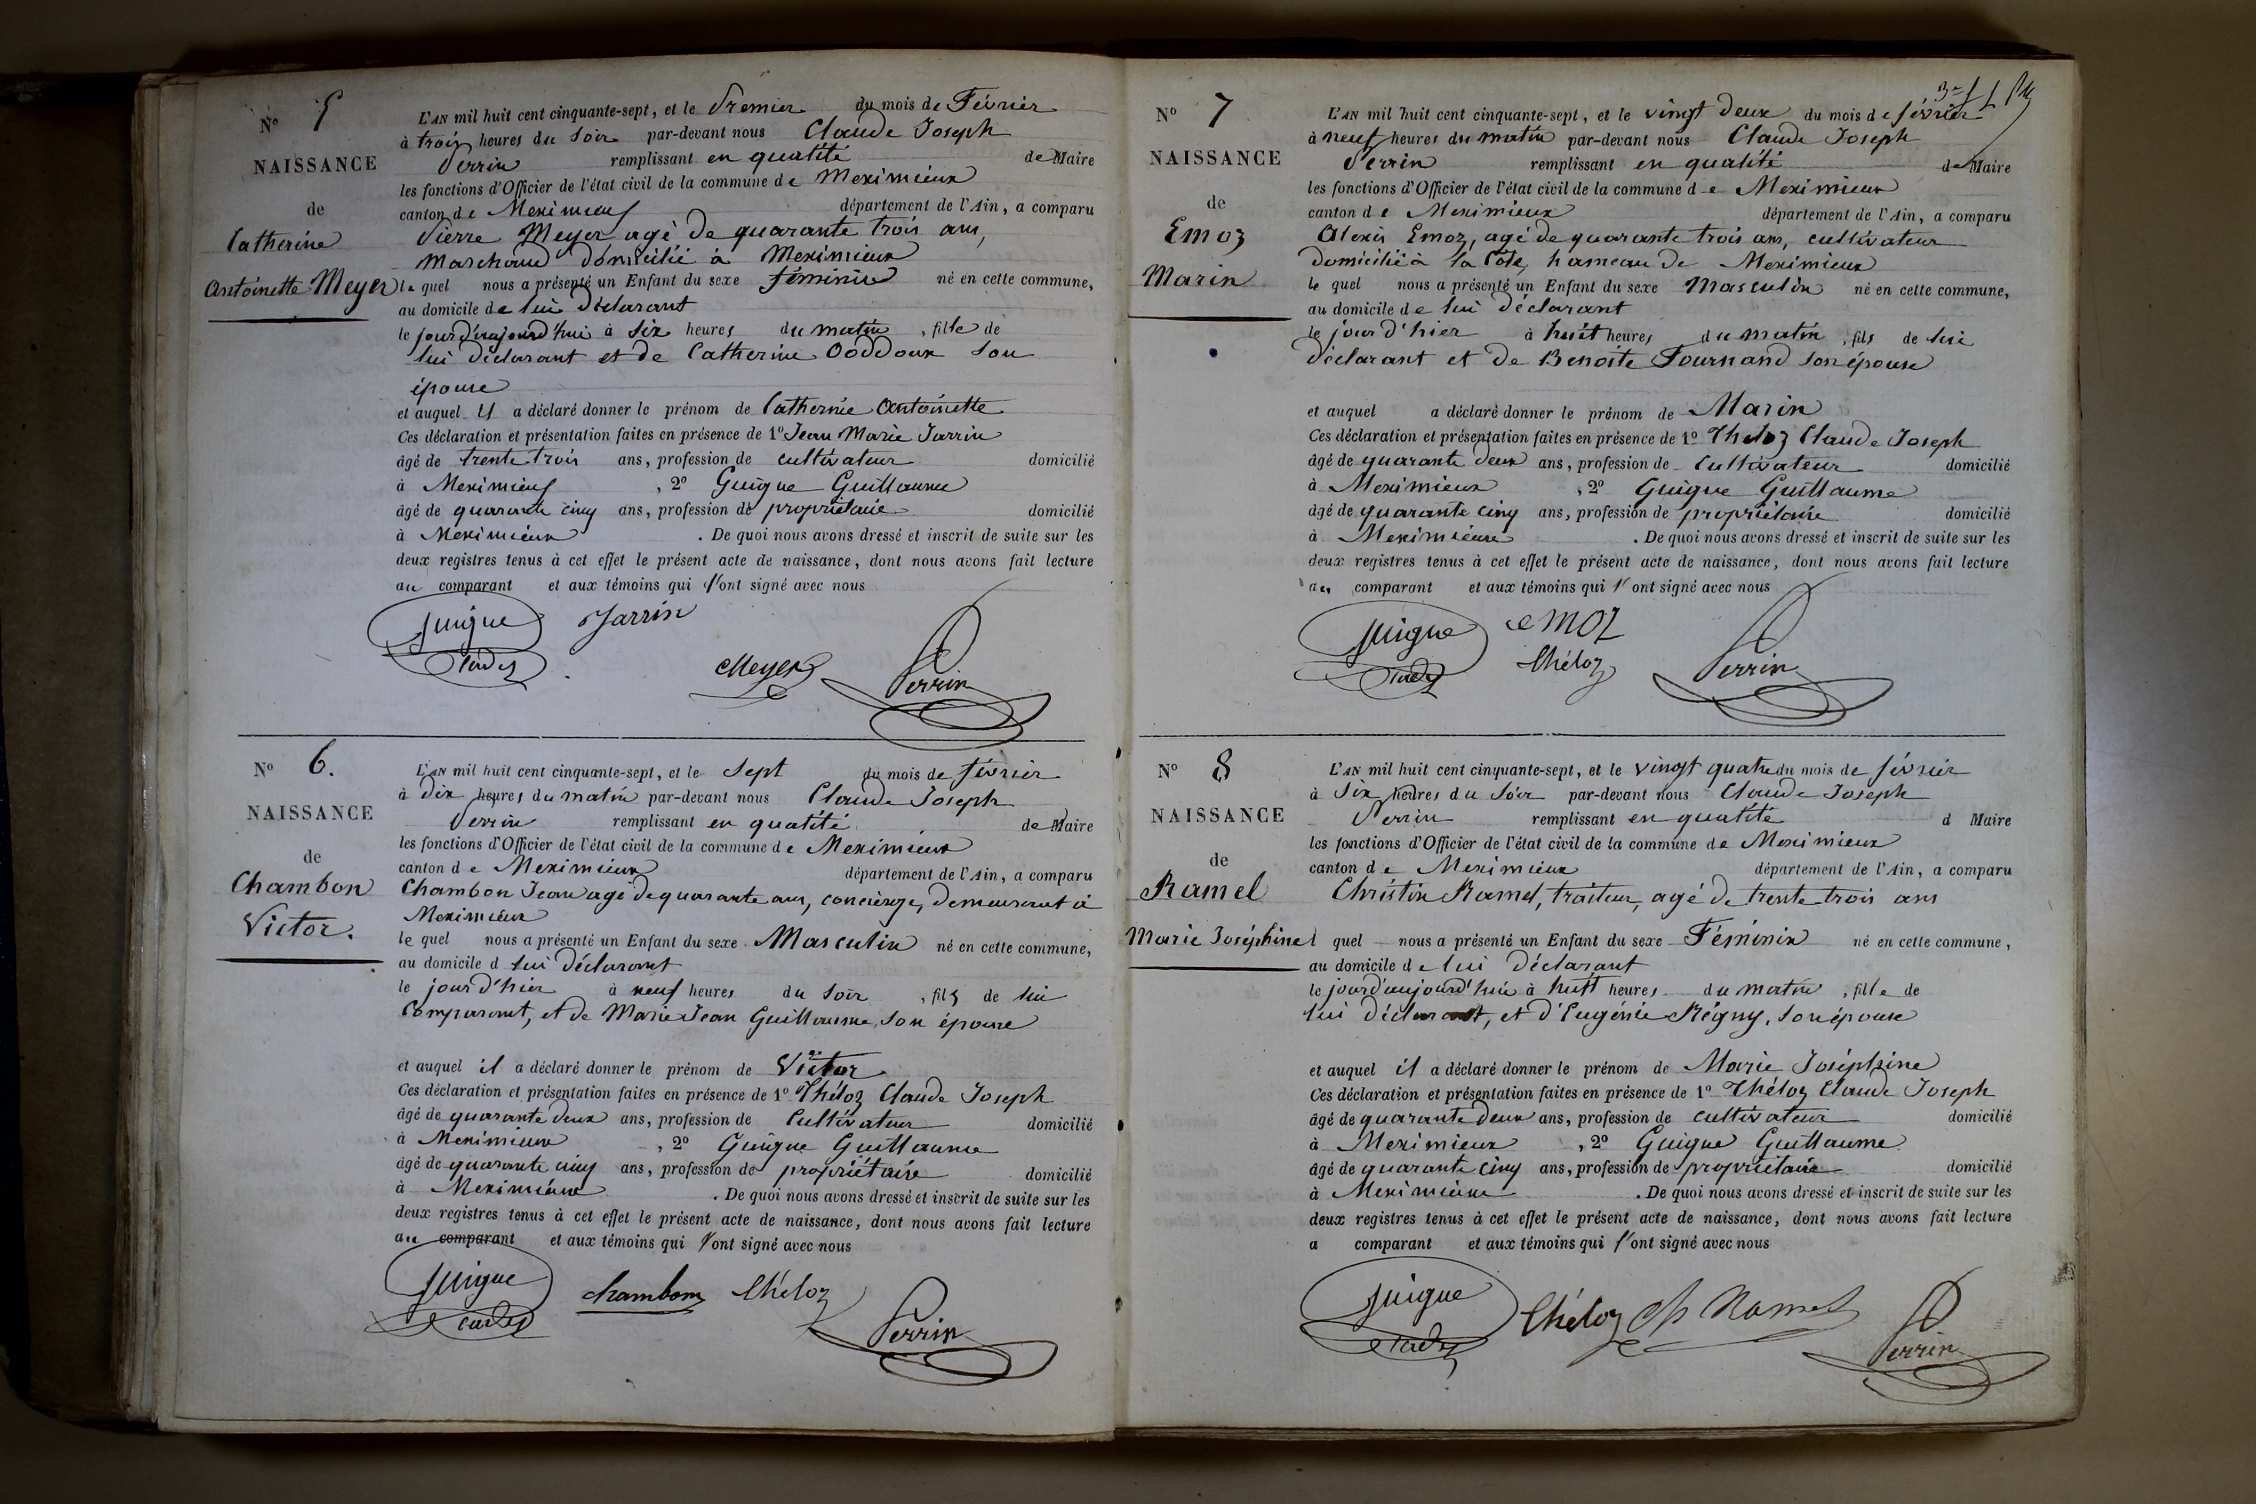 N° 5
NAISSANCE
de
Catherine
Antoinette Meyer
L'AN mil huit cent cinquante-sept, et le Premier du mois de Février
à trois heures du soir par-devant nous Claude Joseph
Perrin remplissant en qualité de Maire
les fonctions d'Officier de l'état civil de la commune de Meximieux
canton de Meximieux département de l'Ain, a comparu
Pierre Meyer agé de quarante trois ans,
marchand domicilié à Meximieux
le quel nous a présenté un Enfant du sexe féminin né en cette commune,
au domicile de lui déclarant
le jourd'aujourd'hui à six heures du matin, fille de
lui déclarant et de Catherine Doddoux son
épouse
et auquel il a déclaré donner le prénom de Catherine Antoinette
Ces déclaration et présentation faites en présence de 1° Jean Marie Jarrin
âgé de trente trois ans, profession de cultivateur domicilié
à Meximieux, 2° Guigue Guillaume
âgé de quarante cinq ans, profession de propriétaire domicilié
à Meximieux. De quoi nous avons dressé et inscrit de suite sur les
deux registres tenus à cet effet le présent acte de naissance, dont nous avons fait lecture
au comparant et aux témoins qui l'ont signé avec nous
Guigue Jarrin
Meyer Perrin
N° 6.
NAISSANCE
de
Chambon
Victor.
L'AN mil huit cent cinquante-sept, et le sept du mois de février
à dix heures du matin par-devant nous Claude Joseph
Perrin remplissant en qualité de Maire
les fonctions d'Officier de l'état civil de la commune de Meximieux
canton de Meximieux département de l'Ain, a comparu
Chambon Jean agé de quarante ans, concierge, demeurant à
Meximieux
le quel nous a présenté un Enfant du sexe Masculin né en cette commune,
au domicile d lui déclarant
le jour d'hier à neuf heures du soir, fils de lui
comparant, et de Marie Jean Guillaume, son épouse
et auquel il a déclaré donner le prénom de Victor
Ces déclaration et présentation faites en présence de 1° Théloz Claude Joseph
âgé de quarante deux ans, profession de Cultivateur domicilié
à Meximieux, 2° Guigue Guillaume
âgé de quarante cinq ans, profession de propriétaire domicilié
à Meximieux. De quoi nous avons dressé et inscrit de suite sur les
deux registres tenus à cet effet le présent acte de naissance, dont nous avons fait lecture
au comparant et aux témoins qui l'ont signé avec nous
Guigue Chambon Théloz
Perrin
N° 7
NAISSANCE
de
Emoz
Marin
L'AN mil huit cent cinquante-sept, et le vingt deux du mois de février
à neuf heures du matin par-devant nous Claude Joseph
Perrin remplissant en qualité de Maire
les fonctions d'Officier de l'état civil de la commune de Meximieux
canton de Meximieux département de l'Ain, a comparu
Alexis Emoz, agé de quarante trois ans, cultivateur
domicilié à la Côte, hameau de Meximieux
le quel nous a présenté un Enfant du sexe Masculin né en cette commune,
au domicile de lui déclarant
le jour d'hier à huit heures du matin, fils de lui
déclarant et de Benoite Fournand son épouse
et auquel a déclaré donner le prénom de Marin
Ces déclaration et présentation faites en présence de 1° Théloz Claude Joseph
âgé de quarante deux ans, profession de Cultivateur domicilié
à Meximieux, 2° Guigue Guillaume
âgé de quarante cinq ans, profession de propriétaire domicilié
à Meximieux. De quoi nous avons dressé et inscrit de suite sur les
deux registres tenus à cet effet le présent acte de naissance, dont nous avons fait lecture
au comparant et aux témoins qui l'ont signé avec nous
Guigue emoz
Théloz Perrin
N° 8
NAISSANCE
de
Ramel
Marie Joséphine
L'AN mil huit cent cinquante-sept, et le vingt quatre du mois de février
à six heures du soir par-devant nous Claude Joseph
Perrin remplissant en qualité d Maire
les fonctions d'Officier de l'état civil de la commune de Meximieux
canton de Meximieux département de l'Ain, a comparu
Christin Ramel, traiteur, agé de trente trois ans
l quel nous a présenté un Enfant du sexe Féminin né en cette commune,
au domicile de lui déclarant
le jourd'aujourd'hui à huit heures du matin, fille de
lui déclarant, et d'Eugénie Régny, son épouse
et auquel il a déclaré donner le prénom de Marie Joséphine
Ces déclaration et présentation faites en présence de 1° Théloz Claude Joseph
âgé de quarante deux ans, profession de cultivateur domicilié
à Meximieux, 2° Guigue Guillaume
âgé de quarante cinq ans, profession de propriétaire domicilié
à Meximieux. De quoi nous avons dressé et inscrit de suite sur les
deux registres tenus à cet effet le présent acte de naissance, dont nous avons fait lecture
a comparant et aux témoins qui l'ont signé avec nous
Guigue Théloz Ch Ramel
Perrin